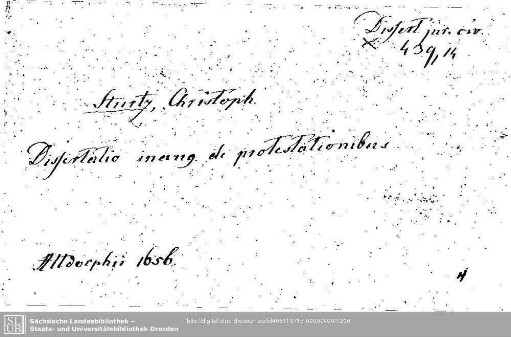 Dissert. jur. civ.
439, 14
Sturtz, Christoph.
Dissertatio inaug. de protestationibus
Altdorphii 1656.
4
SLUB
Sächsische Landesbibliothek –
Staats- und Universitätsbibliothek Dresden